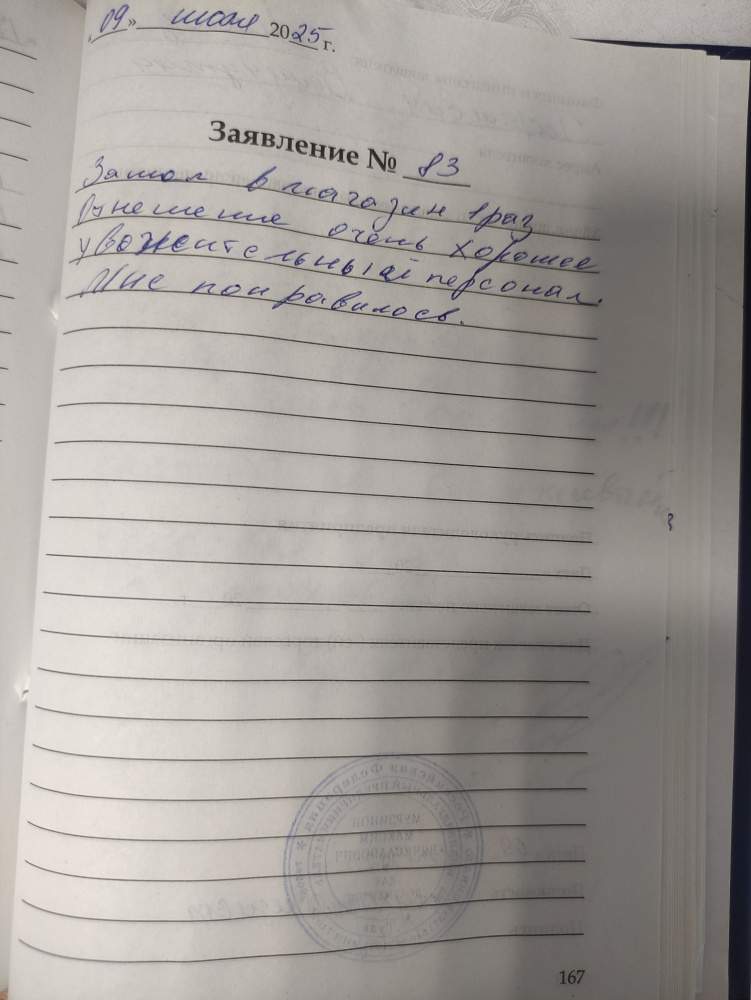 «09» июля 2025 г.
Заявление № 83
Зашол в магазин 1 раз
Отнешение очень хорошее
уважительный персонал.
Мне понравилось.
167